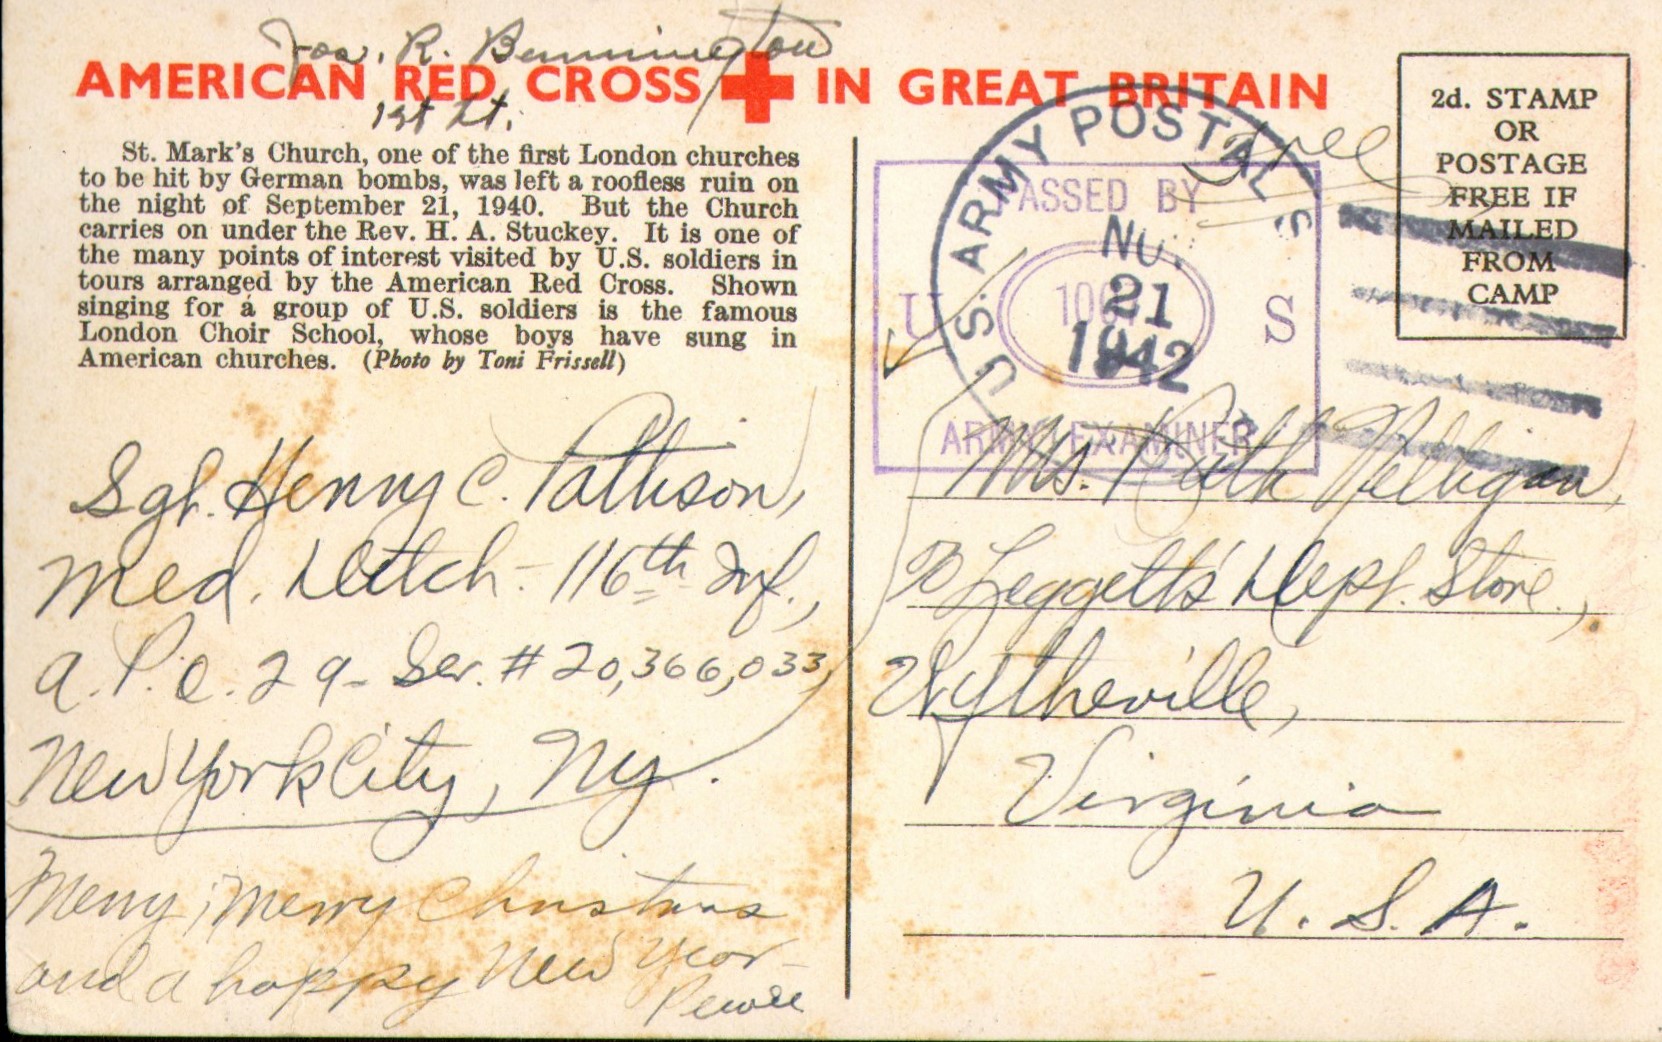 Jos. R. Bennington
1st Lt.
AMERICAN RED CROSS IN GREAT BRITAIN
St. Mark's Church, one of the first London churches
to be hit by German bombs, was left a roofless ruin on
the night of September 21, 1940. But the Church
carries on under the Rev. H. A. Stuckey. It is one of
the many points of interest visited by U.S. soldiers in
tours arranged by the American Red Cross. Shown
singing for a group of U.S. soldiers is the famous
London Choir School, whose boys have sung in
American churches. (Photo by Toni Frissell)
Sgt. Henry C. Pattison,
Med. Detch - 116th Inf.,
A.P.O. 29 - Ser. # 20,366,033,
New York City, NY.
Merry, Merry Christmas
and a happy New Year -
Peewee
2d. STAMP
OR
POSTAGE
FREE IF
MAILED
FROM
CAMP
Free
U.S. ARMY POSTAL S
21
1942
PASSED BY
U S
ARMY EXAMINER
Mrs. Ruth
℅ Leggett's Dept. Store.,
Wytheville,
Virginia
U. S. A.